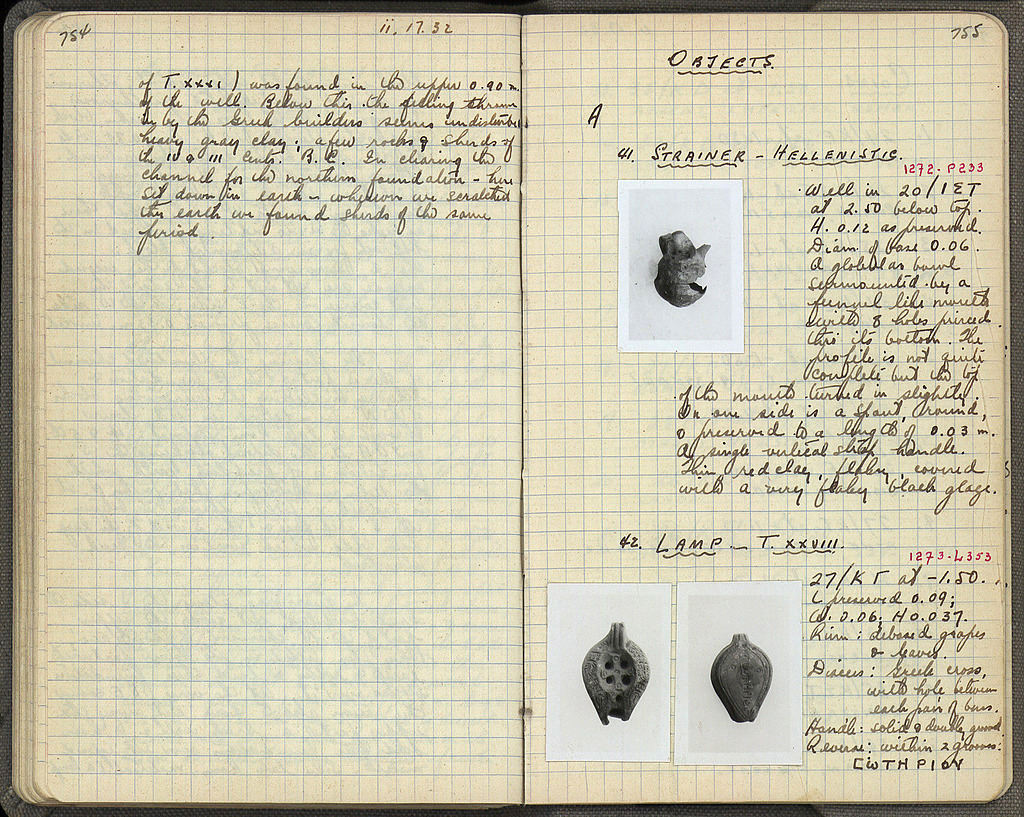 754
ii. 17. 32
of T. XXXI) was found in the upper 0.90 m.
of the well. Below this the filling thrown
in by the Greek builders seems undisturbed
heavy gray clay; a few rocks & sherds of
the II & III Cents. B.C. In clearing the
channel for the northern foundation - here
set down in earth - whereon we scratched
this earth we found sherds of the same
period.
755
OBJECTS.
A
41. STRAINER - HELLENISTIC.
1272-P233
Well in 20/ΙΣΤ
at 2.50 below top.
H. 0.12 as preserved.
Diam. of base 0.06.
A globular bowl
surmounted by a
funnel like mouth
with 8 holes pierced
thro its bottom. The
profile is not quite
complete but the top
of the mouth turned in slightly.
On one side is a spout, round,
& preserved to a length of 0.03 m.
A single vertical strap handle.
Thin red clay, flaky, covered
with a very flaky black glaze.
42. LAMP - T. XXVIII.
1273-L353
27/ΚΓ at -1.50.
L preserved 0.09;
W. 0.06; H 0.037.
Rim: debased grapes
& leaves.
Discus: Greek cross,
with hole between
each pair of bars.
Handle: solid & doubly grooved
Reverse: within 2 grooves:
CΩΤΗΡΙΟΥ